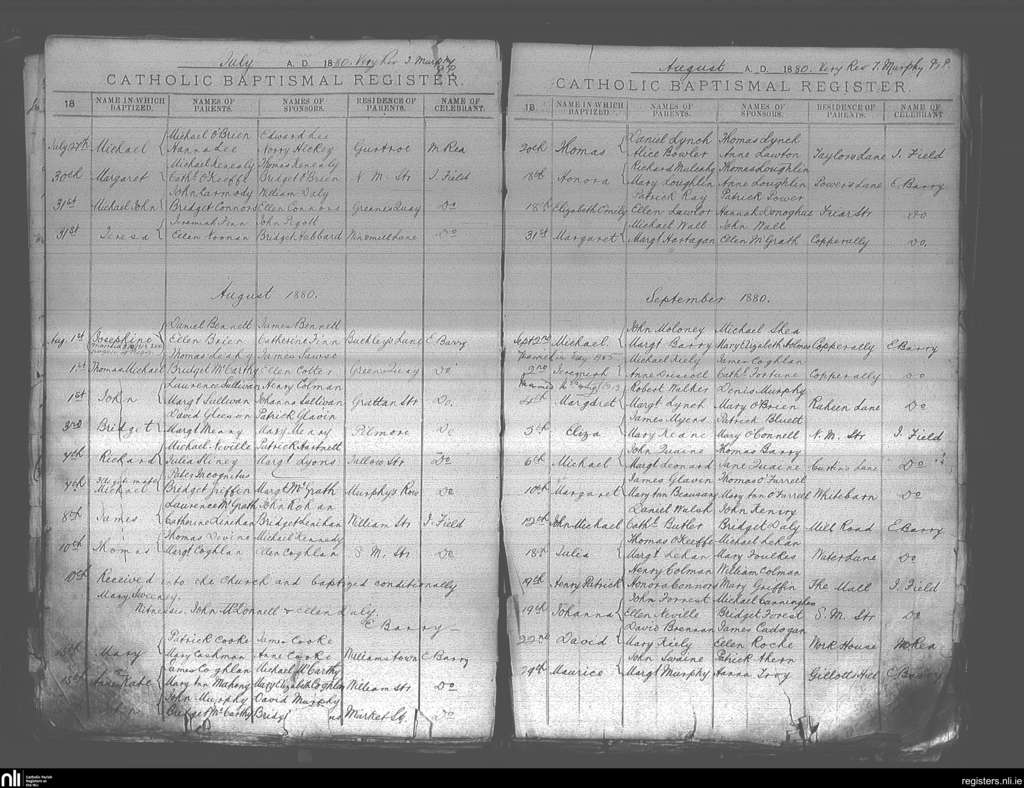 July A. D. 1880. Very Rev J. Murphy P.P.
CATHOLIC BAPTISMAL REGISTER.
18 NAME IN WHICH BAPTIZED. NAMES OF PARENTS. NAMES OF SPONSORS. RESIDENCE OF PARENTS. NAME OF CELEBRANT.
Michael O'Brien Edward Lee
July 28th Michael Hanna Lee Norry Hickey Gurtroe M Rea
Michael Keneally Thomas Keneally
30th Margaret Cath! O'Keeffe Bridget O'Brien N. M. Str J. Field
John Carmody William Daly
31st Michael John Bridget Connors Ellen Connors Greenes Quay Do
Jeremiah Finn John Pigott
31st Teresa Ellen Noonan Bridget Hubbard Ninemile Lane Do
August 1880.
Daniel Bennett James Bennett
Aug. 1st Josephine Ellen Brien Catherine Finn Buckleys Lane E Barry
Thomas Leahy James
1st Thomas Michael Bridget McCarthy Ellen Cotter Greenes Quay Do
Laurence Sullivan Henry Colman
1st John Margt Sullivan Johanna Sullivan Grattan Str Do.
David Gleeson Patrick Glavin
3rd Bridget Margt Meany Mary Meany Pilmore Do
Michael Neville Patrick Hartnett
4th Richard Julia Sliney Margt Lyons Tallow Str Do
Pater Incognitus
7th Michael Bridget Griffin Margt McGrath Murphys Row Do
Laurence McGrath John Rohan
8th James Catherine Linehan Bridget Lenihan William Str J. Field
Thomas Devine Michael Kennedy
10th Thomas Margt Coghlan Ellen Coghlan S. M. Str Do
10th Received into the Church and Baptized conditionally
Mary Sweeney.
Witnesses. John McDonnell & Ellen Daly.
E Barry
Patrick Cooke James Cooke
15th Mary Mary Cashman Anne Cooke Williamstown E Barry
James Coghlan Michael McCarthy
15th Kate Mary Ann Mahony Mary Elizabeth Coghlan William Str Do
John Murphy David Murphy
Bridget McCarthy Bridg Market Sq. Do
August A. D. 1880. Very Rev J. Murphy P.P.
CATHOLIC BAPTISMAL REGISTER.
18 NAME IN WHICH BAPTIZED. NAMES OF PARENTS. NAMES OF SPONSORS. RESIDENCE OF PARENTS. NAME OF CELEBRANT
Daniel Lynch Thomas Lynch
20th Thomas Alice Bowler Anne Lawton Taylors Lane J. Field
Richard Mulcahy Thomas Loughlin
18th Honora Mary Loughlin Anne Loughlin Powers Lane E Barry
Patrick Ray Patrick Power
18th Elizabeth Emily Ellen Lawlor Hannah Donoghue Friar Str Do
Michael Wall John Wall
31st Margaret Margt Hartagan Ellen McGrath Copperally Do.
September 1880.
John Moloney Michael Shea
Sept 2nd Michael Margt Barry Mary Elizabeth Holmes Copperally E Barry
Michael Kiely James Coghlan
2nd Jeremiah Anne Driscoll Cath! Fortune Copperally Do
Robert Walker Denis Murphy
4th Margaret Margt Lynch Mary O'Brien Raheen Lane Do
James Myers Patrick Bluett
5th Eliza Mary Keane Mary O'Connell N. M. Str J. Field
John Quaine Thomas Barry
6th Michael Margt Leonard Jane Quaine Curtins Lane Do
James Glavin Thomas O'Farrell
10th Margaret Mary Ann Beausang Mary Ann O'Farrell Whitebarn Do
Daniel Walsh John Henry
12th John Michael Cath! Butler Bridget Daly Mill Road E Barry
Thomas O'Keeffe Michael Lehan
18th Julia Margt Lehan Mary Foulkes Water Lane Do
Henry Colman William Colman
19th Henry Patrick Honora Connors Mary Griffin The Mall J. Field
John Forrest Michael Cunningham
19th Johanna Ellen Neville Bridget Forest S. M. Str Do
David Brennan James Cadogan
22nd David Mary Kiely Ellen Roche Work House M Rea
John Swaine Patrick Ahern
29th Maurice Margt Murphy Hanna Troy Gillotts Hill E Barry
nli Catholic Parish Registers at the NLI
registers.nli.ie